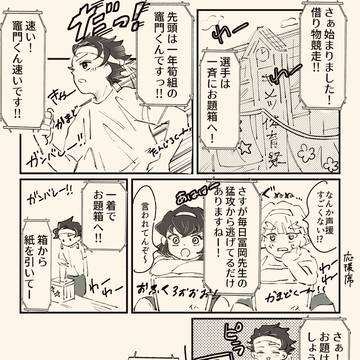 さぁ始まりました!
借り物競走!!
選手は
一斉にお題箱へ!
わー
体育祭
だっ!!
先頭は一年筍組の
竈門くんですっ!!
速い!
竈門くん速いです!!
ガンバレー!!
わー
なんか声援
すごくない!?
さすが毎日冨岡先生の
猛攻から逃げてるだけ
ありますねー!
言われてんぞ〜
応援席
ガンバレー!!
一着で
お題箱へ!!
箱から
紙を引いてー
わー
さぁ
お題は
しょう
ピラッ